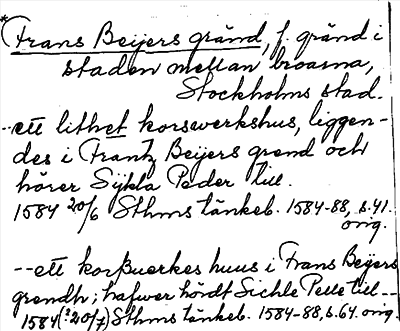 *Frans Beijers gränd, f. gränd i
staden mellan broarna,
Stockholms stad.
--ett lithet korswerkshus, liggen-
des i Frantz Beijers grend och
hörer Sÿkla Peder till.
1584 20/6 Sthms tänkeb. 1584-88, s.41.
orig.
--ett korßuerkes huus i Frans Beijers
grendh; hafwer hördt Sichle Pelle till--
1584 (?20/7) Sthms tänkeb. 1584-88, s.64. orig.